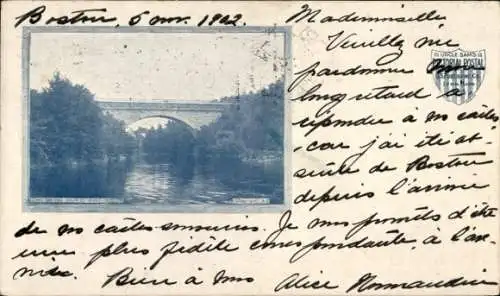 Boston, 5 nov. 1902.
Mademoiselle
Veuillez me
pardonner mon
long retard à
répondre à vos cartes
car j'ai été ab-
sente de Boston
depuis l'arrivée
de nos cartes
Je vous promets d'être
une plus fidèle correspondante, à l'av-
Bien à vous
Alice Normandin
UNCLE SAM'S
POSTAL